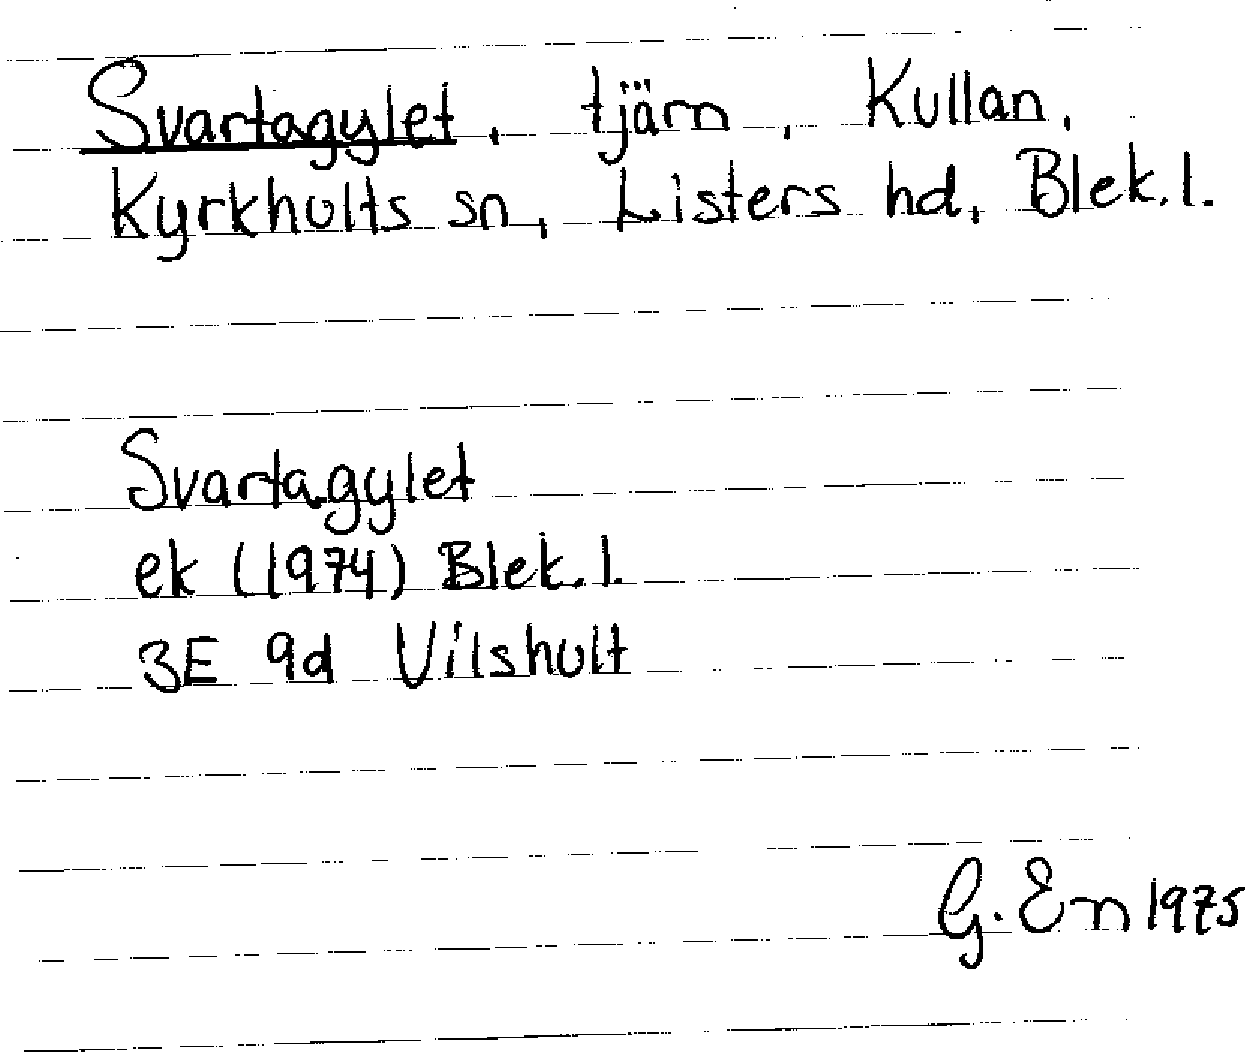 Svartagylet, tjärn, Kullan,
Kyrkhults sn, Listers hd, Blek.l.
Svartagylet
ek (1974) Blek.l.
3E 9d Vilshult
G. En 1975